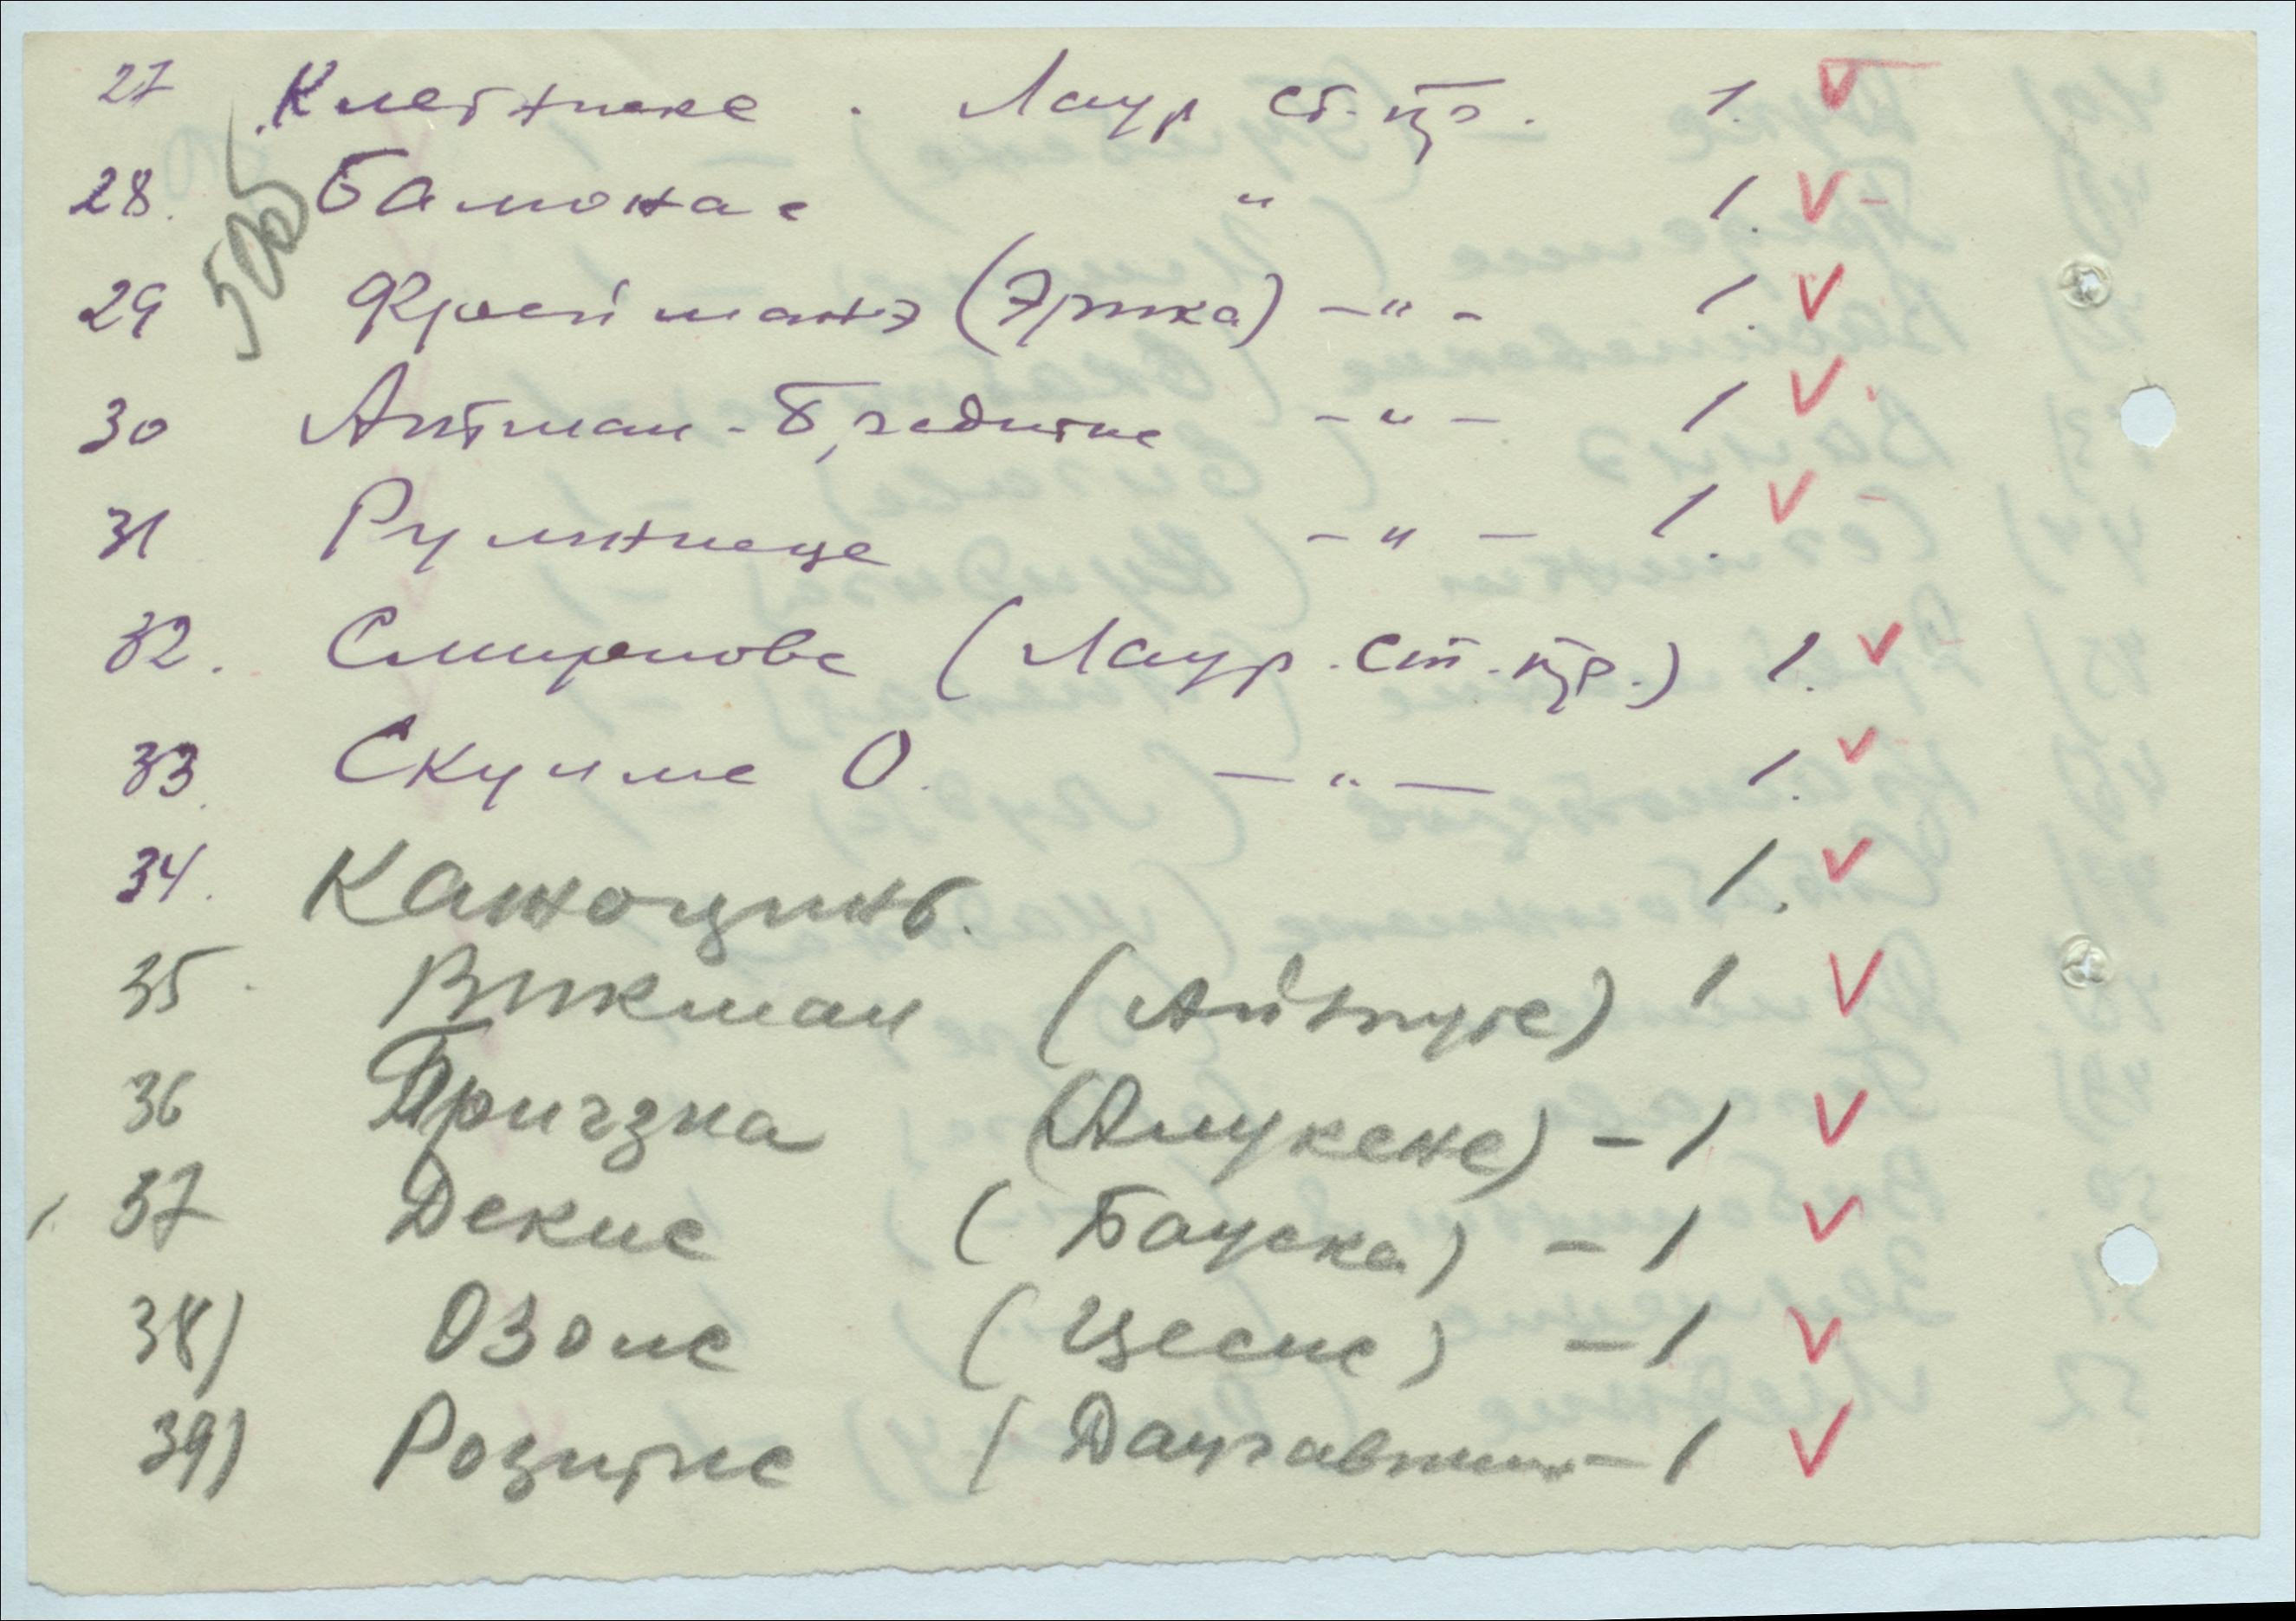 27 Клетниеке. Лаур ст. пр. 1. ✓
28. Бамонае " 1. ✓ -
29 Фрейманэ (Эрика) -"- 1. ✓
30 Антман-Бредитне -"- 1 ✓
31 Румниеце -"- 1. ✓ -
32. Смирнова (Лаур. Ст. пр.) 1. ✓
33. Скулме О. -"- 1. ✓
34. Каноцинь. 1. ✓
35. Викман (Айзпуте) 1 ✓
36 Пригзна (Алуксне) - 1 ✓
37 Декне (Бауска) - 1 ✓
38) Озоне (Цесис) - 1 ✓
39) Розитне (Даугавпилс - 1 ✓
500